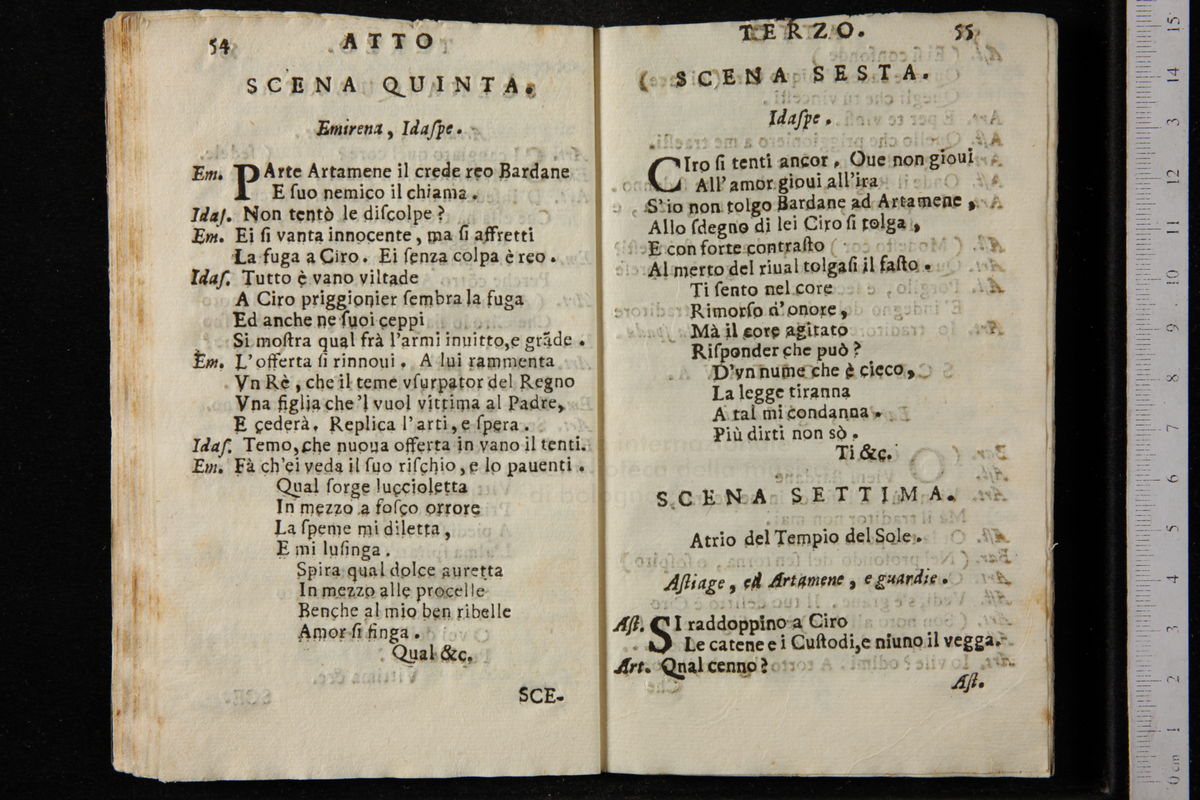 54 ATTO
SCENA QUINTA.
Emirena, Idaſpe.
Em. PArte Artamene il crede reo Bardane
E ſuo nemico il chiama.
Idaſ. Non tentò le diſcolpe?
Em. Ei ſi vanta innocente, ma ſi affretti
La fuga a Ciro. Ei ſenza colpa è reo.
Idaſ. Tutto è vano viltade
A Ciro priggionier ſembra la fuga
Ed anche ne ſuoi ceppi
Si moſtra qual frà l'armi inuitto, e grãde.
Em. L'offerta ſi rinnoui. A lui rammenta
Vn Rè, che il teme vſurpator del Regno
Vna figlia che'l vuol vittima al Padre,
E cederà. Replica l'arti, e ſpera.
Idaſ. Temo, che nuoua offerta in vano il tenti.
Em. Fà ch'ei veda il ſuo riſchio, e lo pauenti.
Qual ſorge luccioletta
In mezzo a foſco orrore
La ſpeme mi diletta,
E mi luſinga.
Spira qual dolce auretta
In mezzo alle procelle
Benche al mio ben ribelle
Amor ſi finga.
Qual &c.
SCE-
TERZO. 55
SCENA SESTA.
Idaſpe.
CIro ſi tenti ancor. Oue non gioui
All'amor gioui all'ira
S'io non tolgo Bardane ad Artamene,
Allo ſdegno di lei Ciro ſi tolga,
E con forte contraſto
Al merto del riual tolgaſi il faſto.
Ti ſento nel core
Rimorſo d'onore,
Mà il core agitato
Riſponder che può?
D'vn nume che è cieco,
La legge tiranna
A tal mi condanna.
Più dirti non sò.
Ti &c.
SCENA SETTIMA.
Atrio del Tempio del Sole.
Aſtiage, ed Artamene, e guardie.
Aſt. SI raddoppino a Ciro
Le catene e i Cuſtodi, e niuno il vegga.
Art. Qnal cenno?
Aſt.